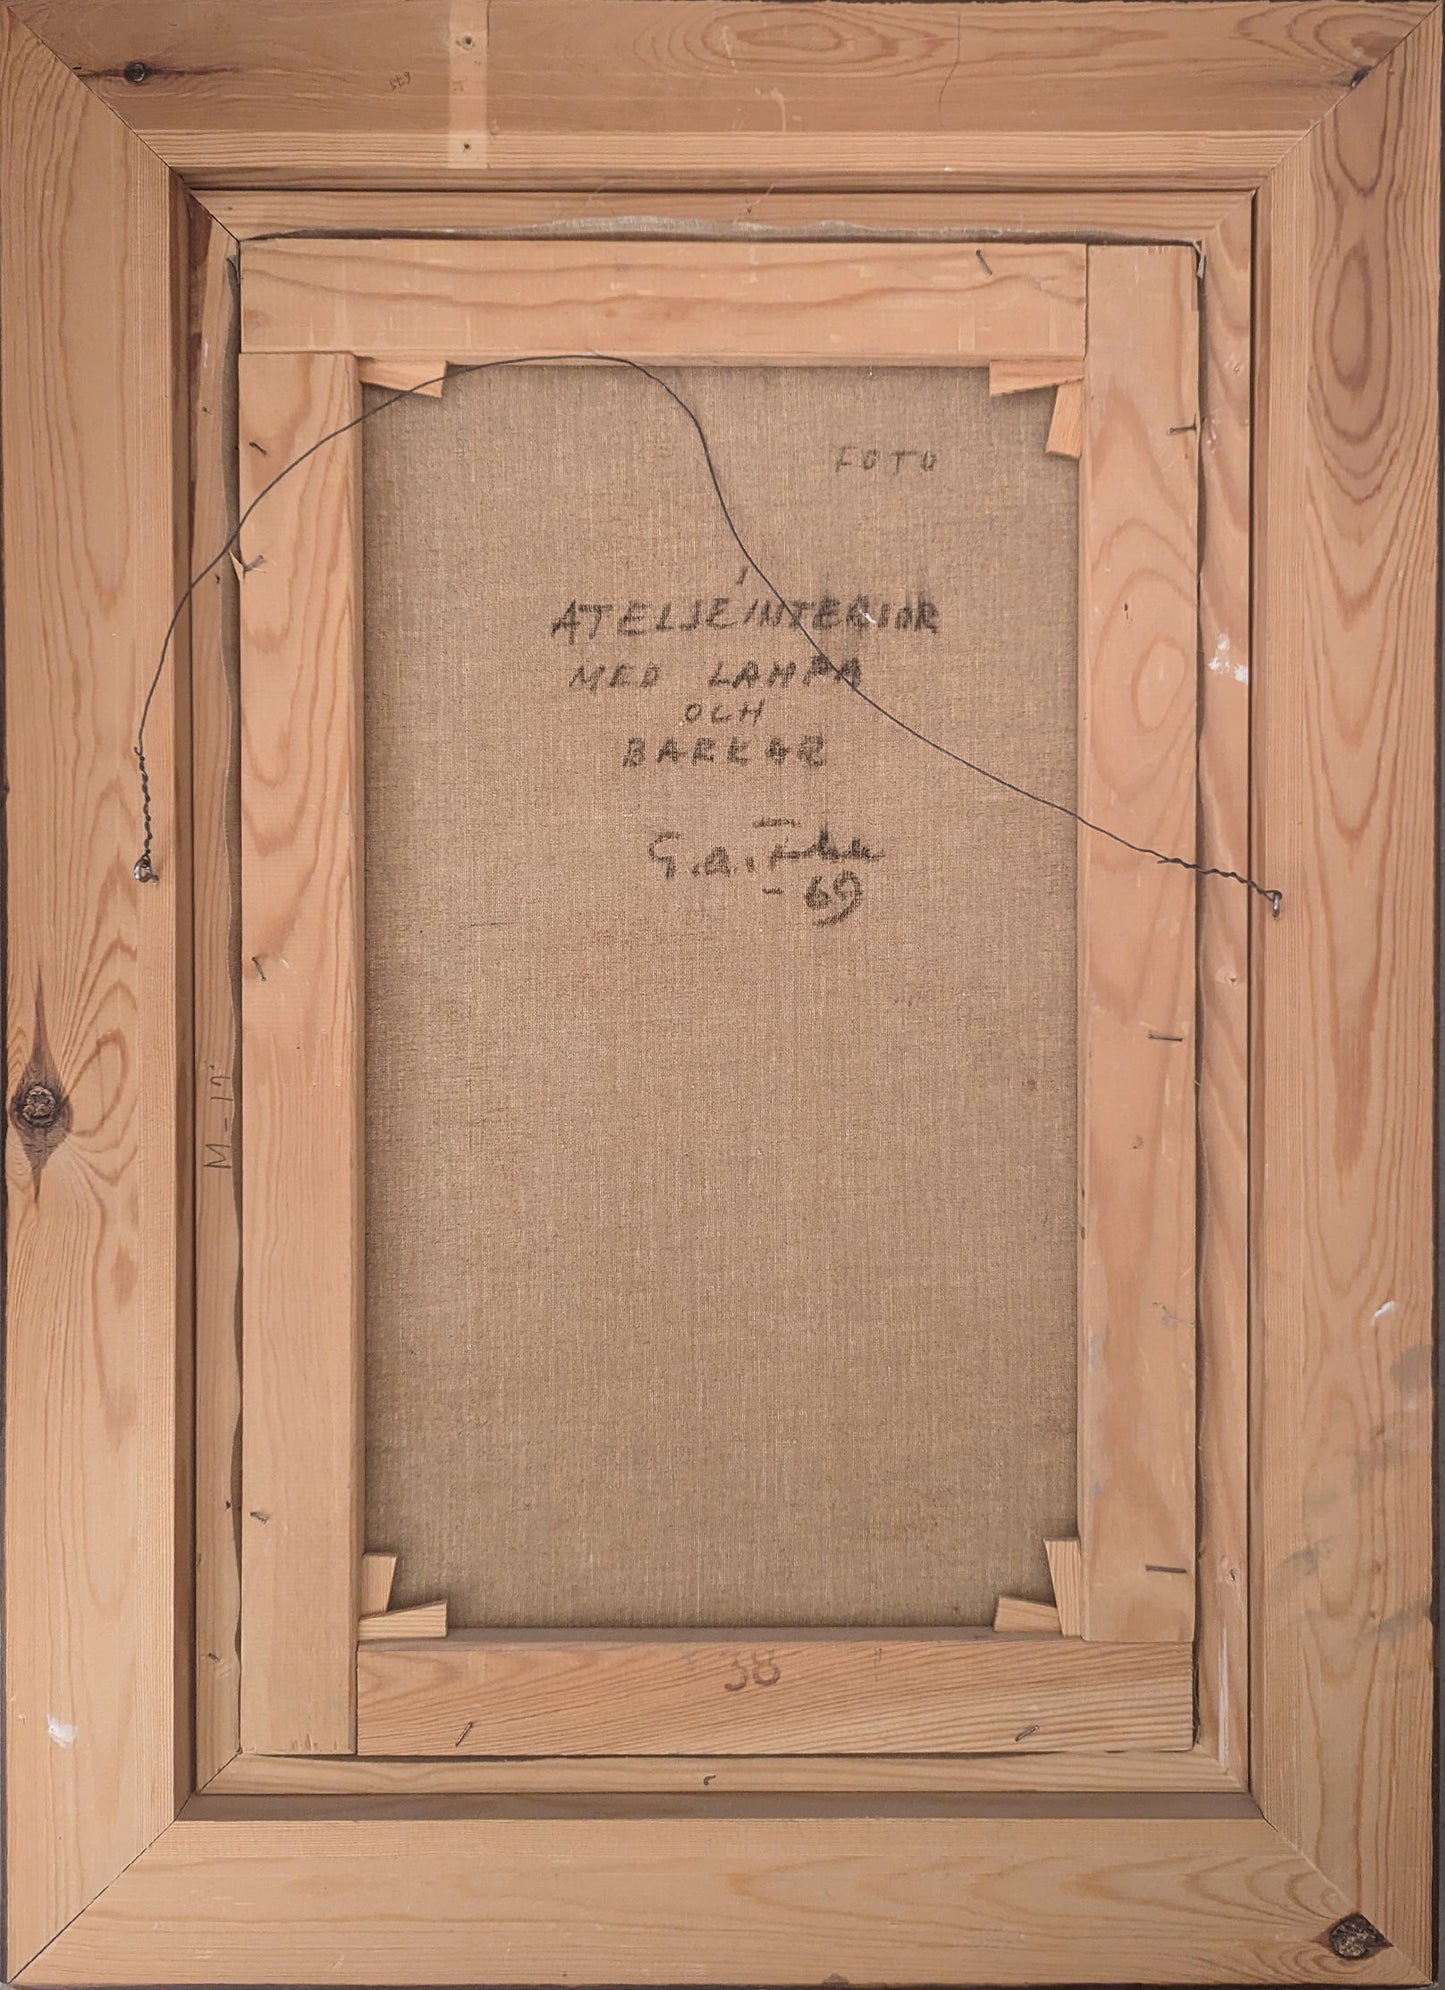 FOTO
ATELJEINTERIÖR
MED LAMPA
OCH
BARKAR
G.A.
-69
M-17
38